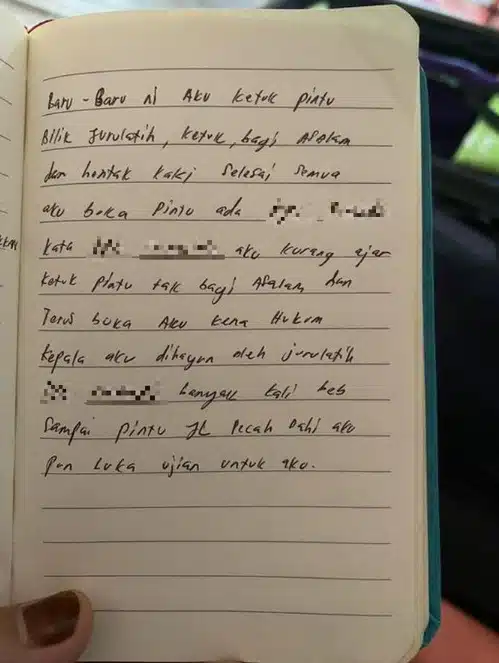 Baru-Baru ni Aku ketuk pintu
Bilik Jurulatih, ketuk, bagi Asalam
dan hentak kaki selesai semua
aku buka pintu ada
kata aku kurang ajar
ketuk pintu tak bagi Asalam dan
Terus buka Aku kena Hukum
kepala aku dihayun oleh jurulatih
banyak kali beb
Sampai pintu JL pecah Dahi aku
pun luka ujian untuk aku.